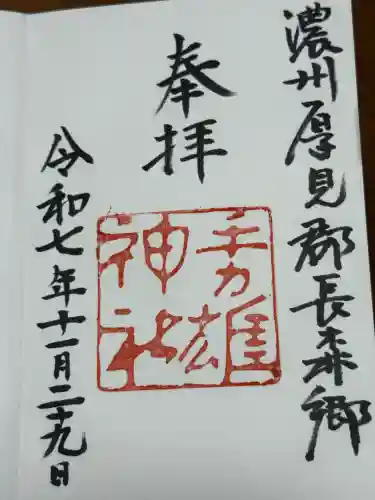 濃州厚見郡長森郷
奉拝
手力雄
神社
令和七年十一月二十九日